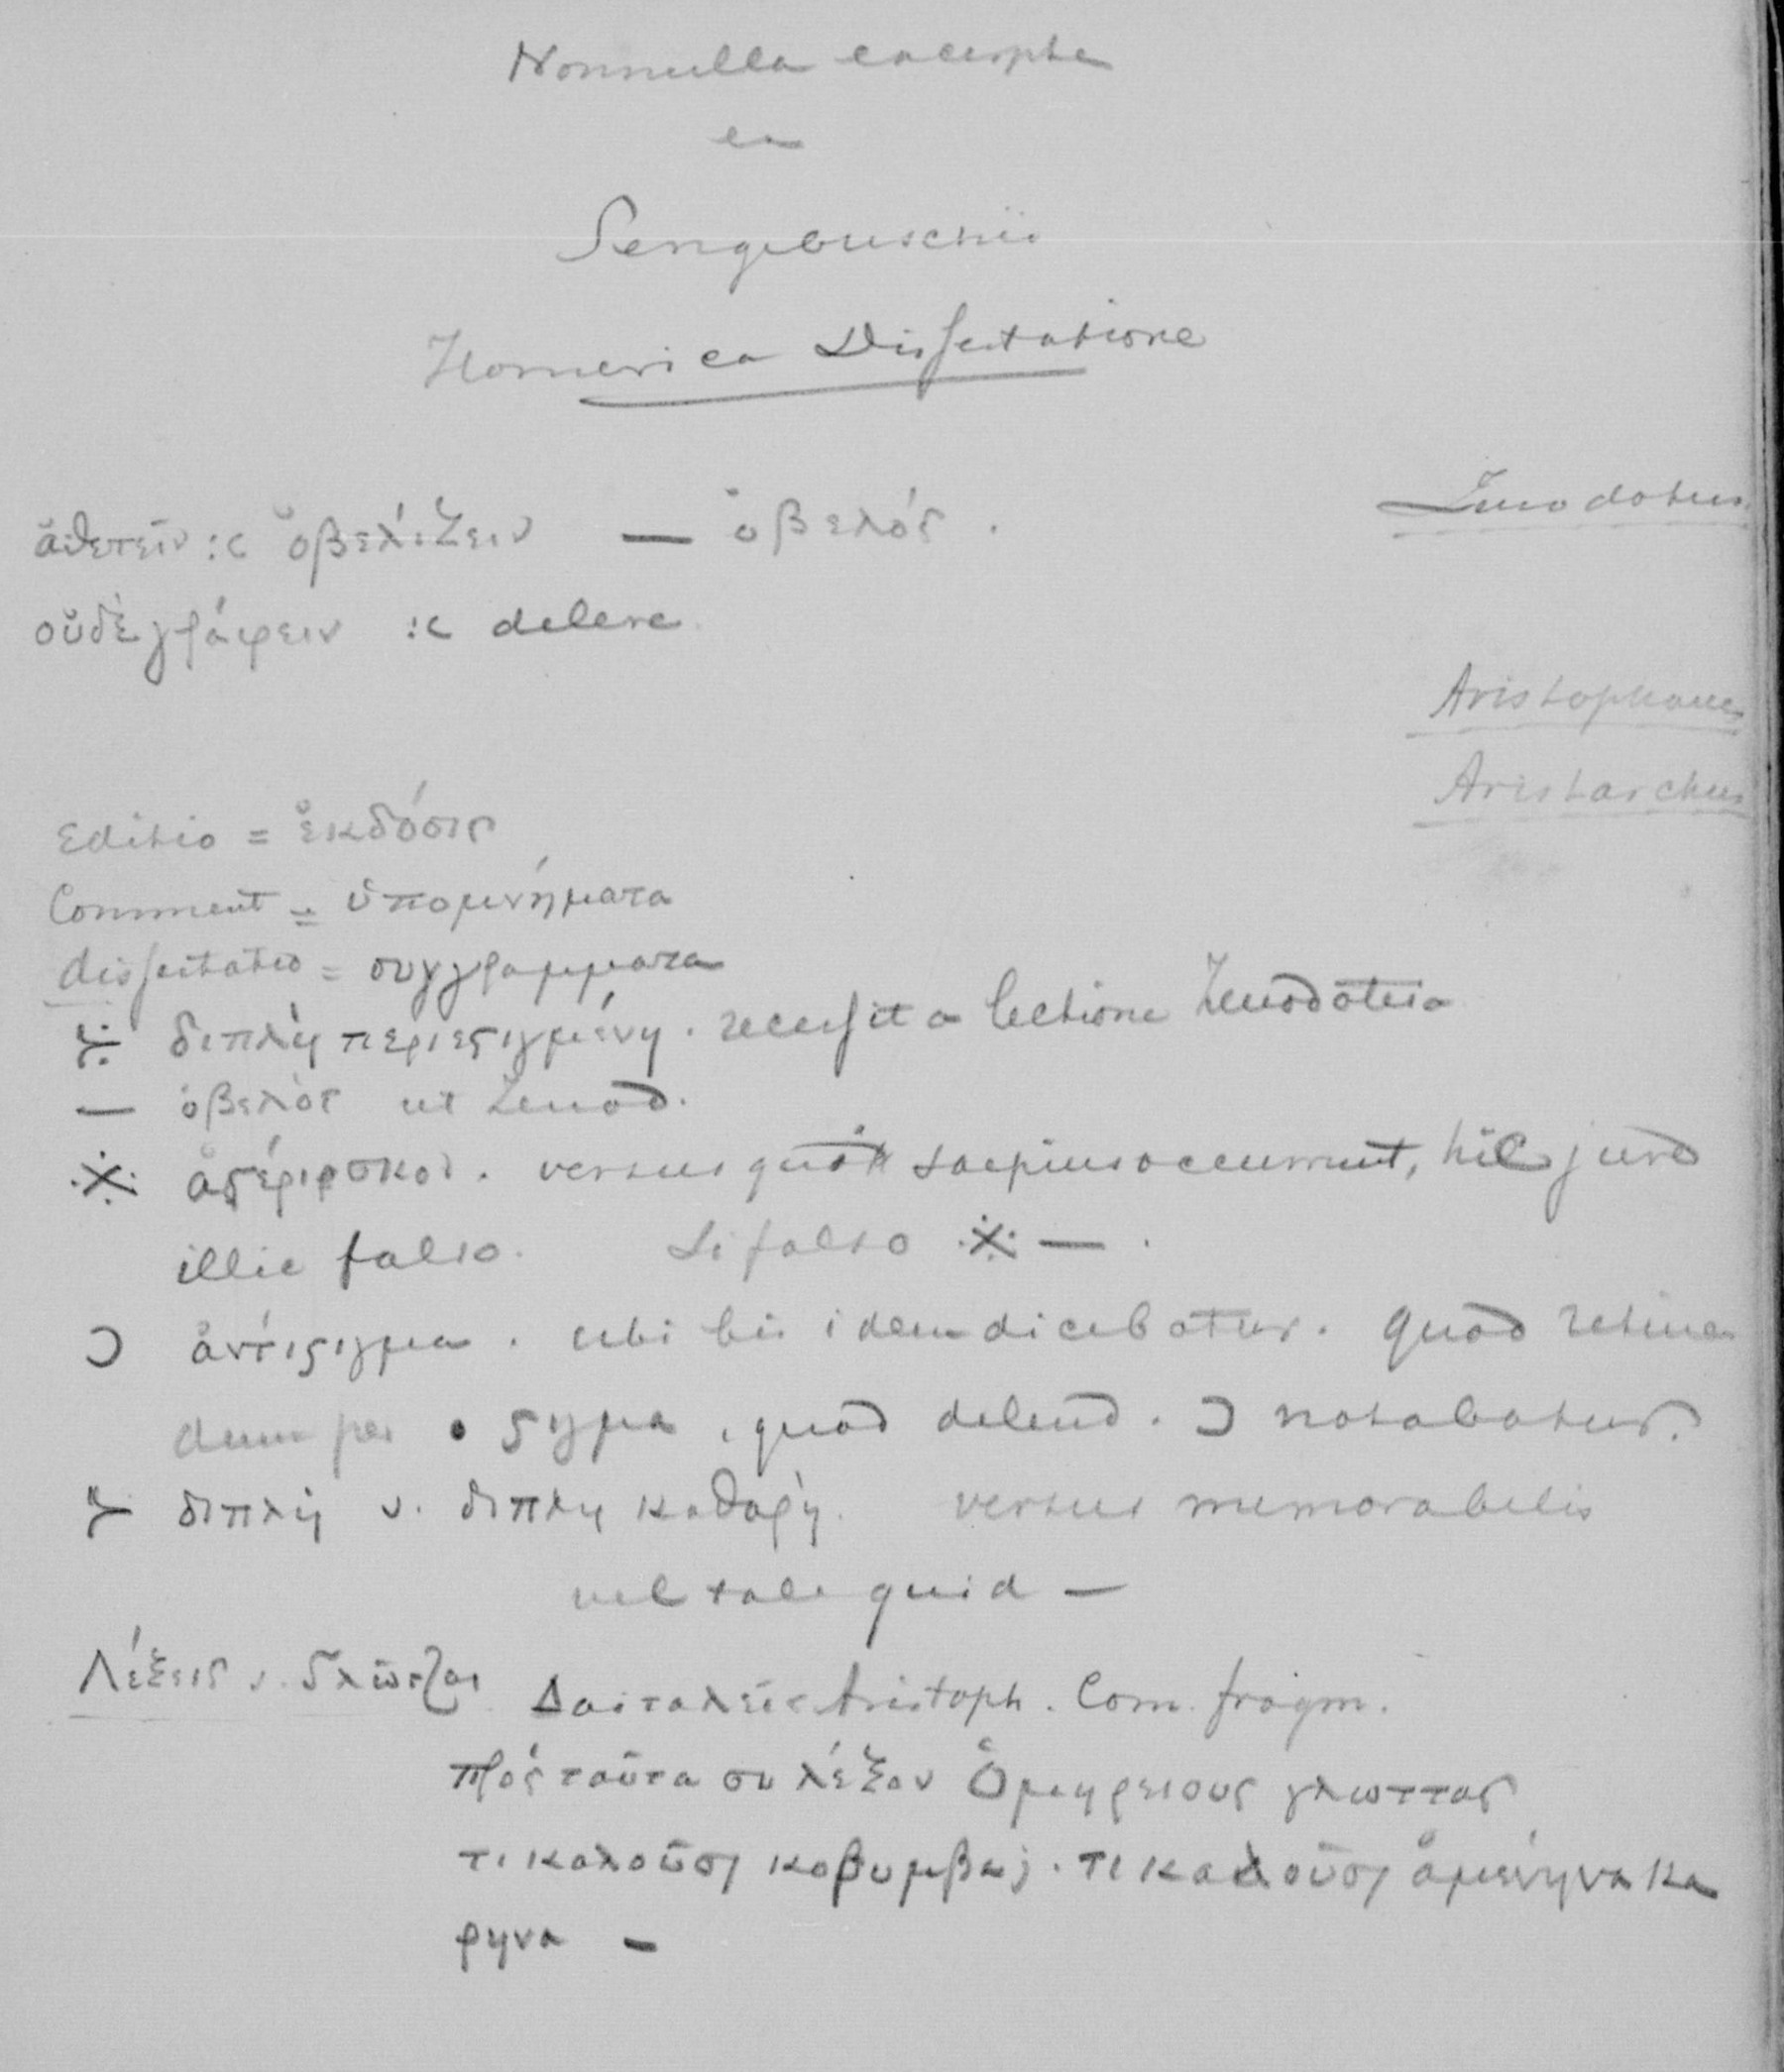 Nonnulla excerpta
ex
Sengebuschii
Homerica Dissertatione
Zenodotus
ἀθετεῖν :c ὀβελίζειν — ὀβελός.
οὐδὲ γράφειν :c delere.
Aristophanes
Aristarchus
Editio = ἐκδόσις
Comment = ὑπομνήματα
dissertatio = συγγραμματα
⸖ διπλῆ περιεϛιγμένη. recessit a lectione Zenodoteia
— ὀβελὸς ut Zenod.
※ ἀϛέρισκος. versus quod saepius occurrunt, hic jure
illic falso. Si falso ※ — .
Ɔ ἀντίϛιγμα. ubi bis idem dicebatur. quod retinen
dum per • ϛιγμα, quod delend. Ɔ notabatur.
⸖ διπλῆ v. διπλη καθαρὴ. versus memorabilis
vel tale quid —
Λέξεις v. Γλῶτται Δαιταλεῖς Aristoph. Com. fragm.
Πρὸς ταῦτα συ λέξον Ὁμηρειους γλωττας
τι καλοῦσι κορυμβα; . τι καλοῦσι ἀμένηνα κα
ρηνα —